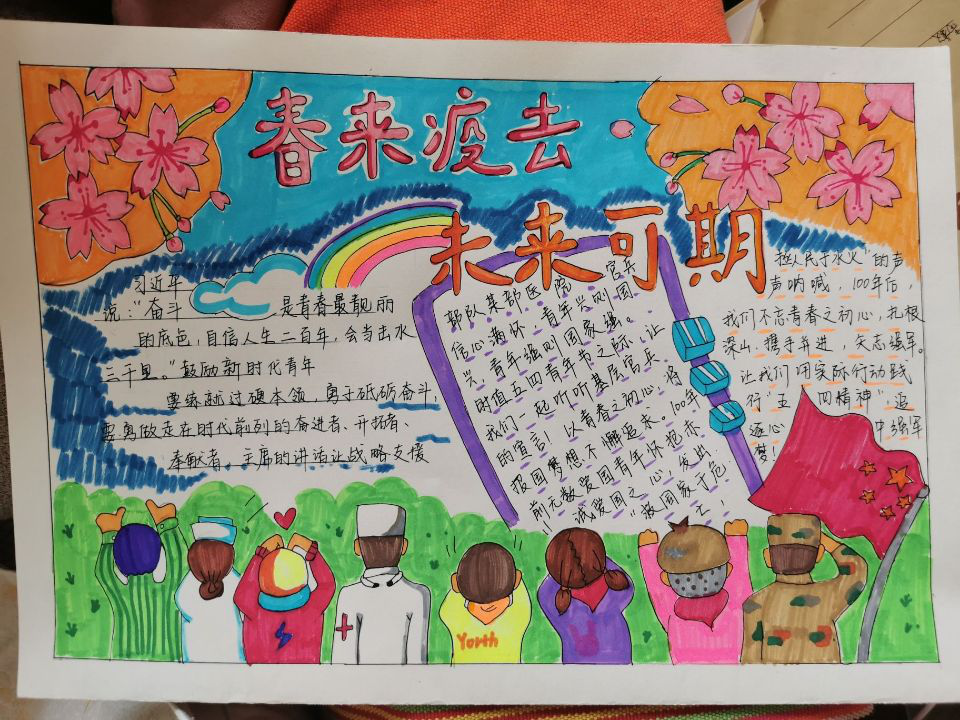 春来疫去
未来可期
习近平
说："奋斗是青春最靓丽
的底色，自信人生二百年，会当击水
三千里。"鼓励新时代青年
要练就过硬本领，勇于砥砺奋斗，
要勇做走在时代前列的奋进者、开拓者、
奉献者。主席的讲话让战略支援
部队某部医院官兵
信心满怀。青年兴则国
兴，青年强则国家强。
时值五四青年节之际，让
我们一起听听基层官兵
的宣言！以青春之初心，将
报国梦想不懈追求。100年
前无数爱国青年怀抱赤
诚爱国之心，发出
"救国家于危亡
拯人民于水火"的声
声呐喊，100年后，
我们不忘青春之初心，扎根
深山、携手并进，矢志强军。
让我们用实际行动践
行"五四精神"，追
逐心中强军
梦！
Yorth